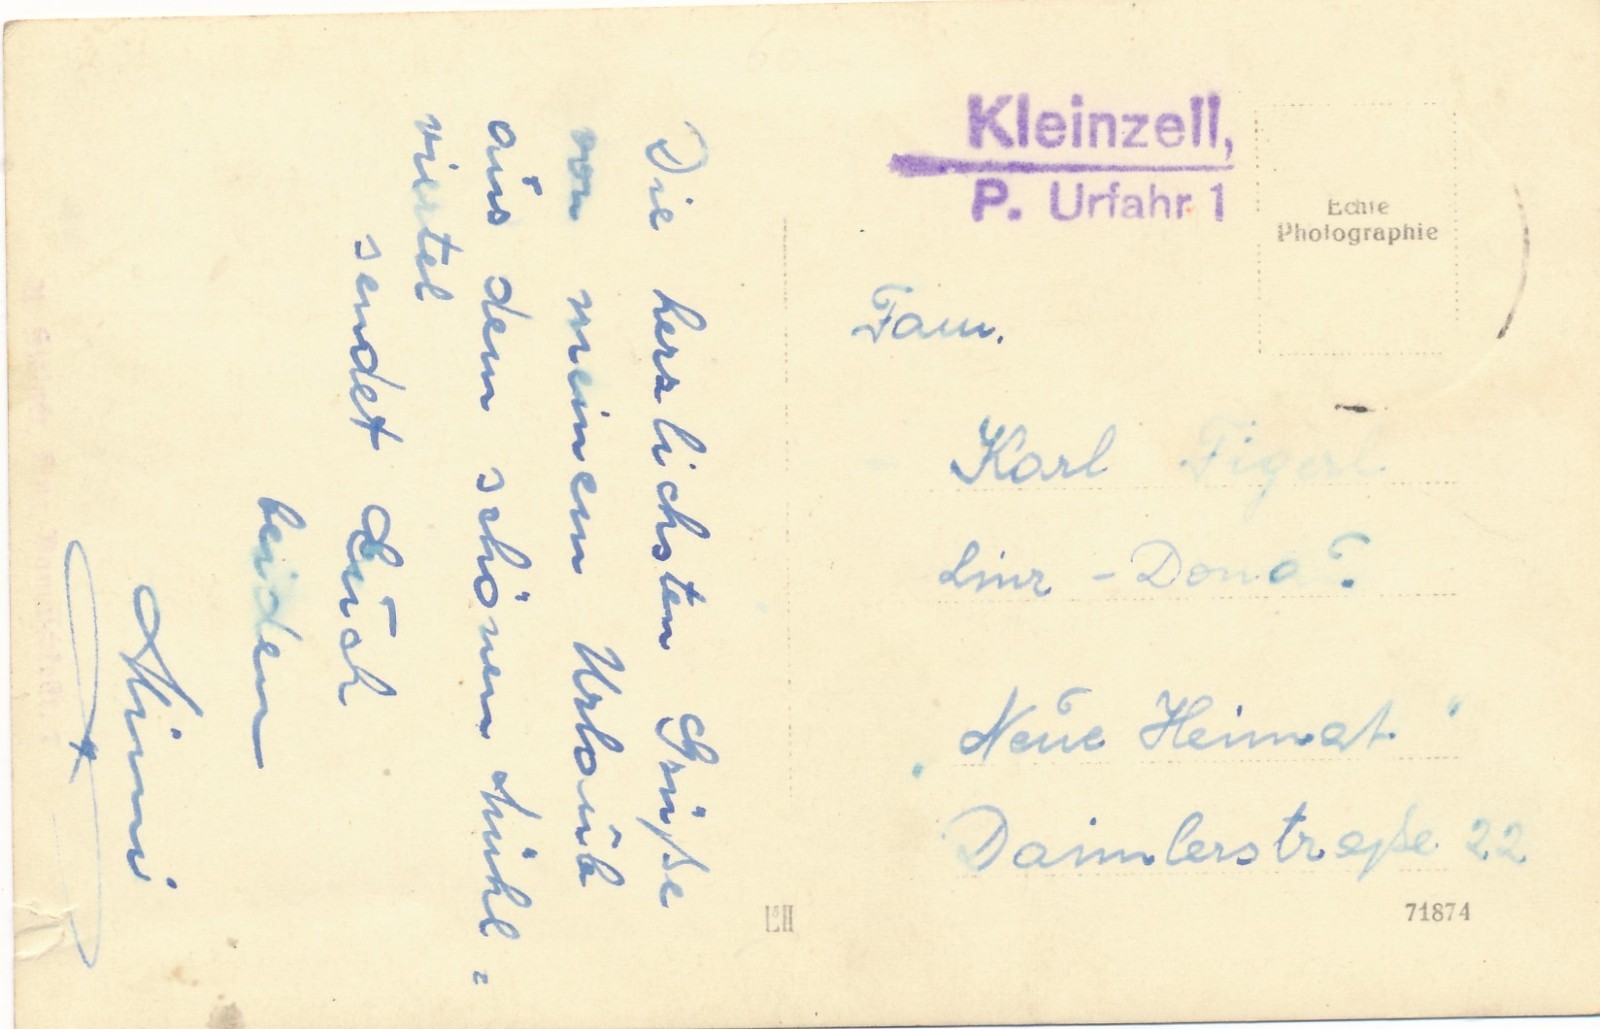 Die herzlichsten Grüße
von meinem Urlaub
aus dem schönen Mühl=
viertel
sendet Euch
beiden
Mimi
Kleinzell,
P. Urfahr 1
Echte
Photographie
Fam.
Karl Figerl
Linz - Dona?
"Neue Heimat"
Daimlerstraße 22
71874